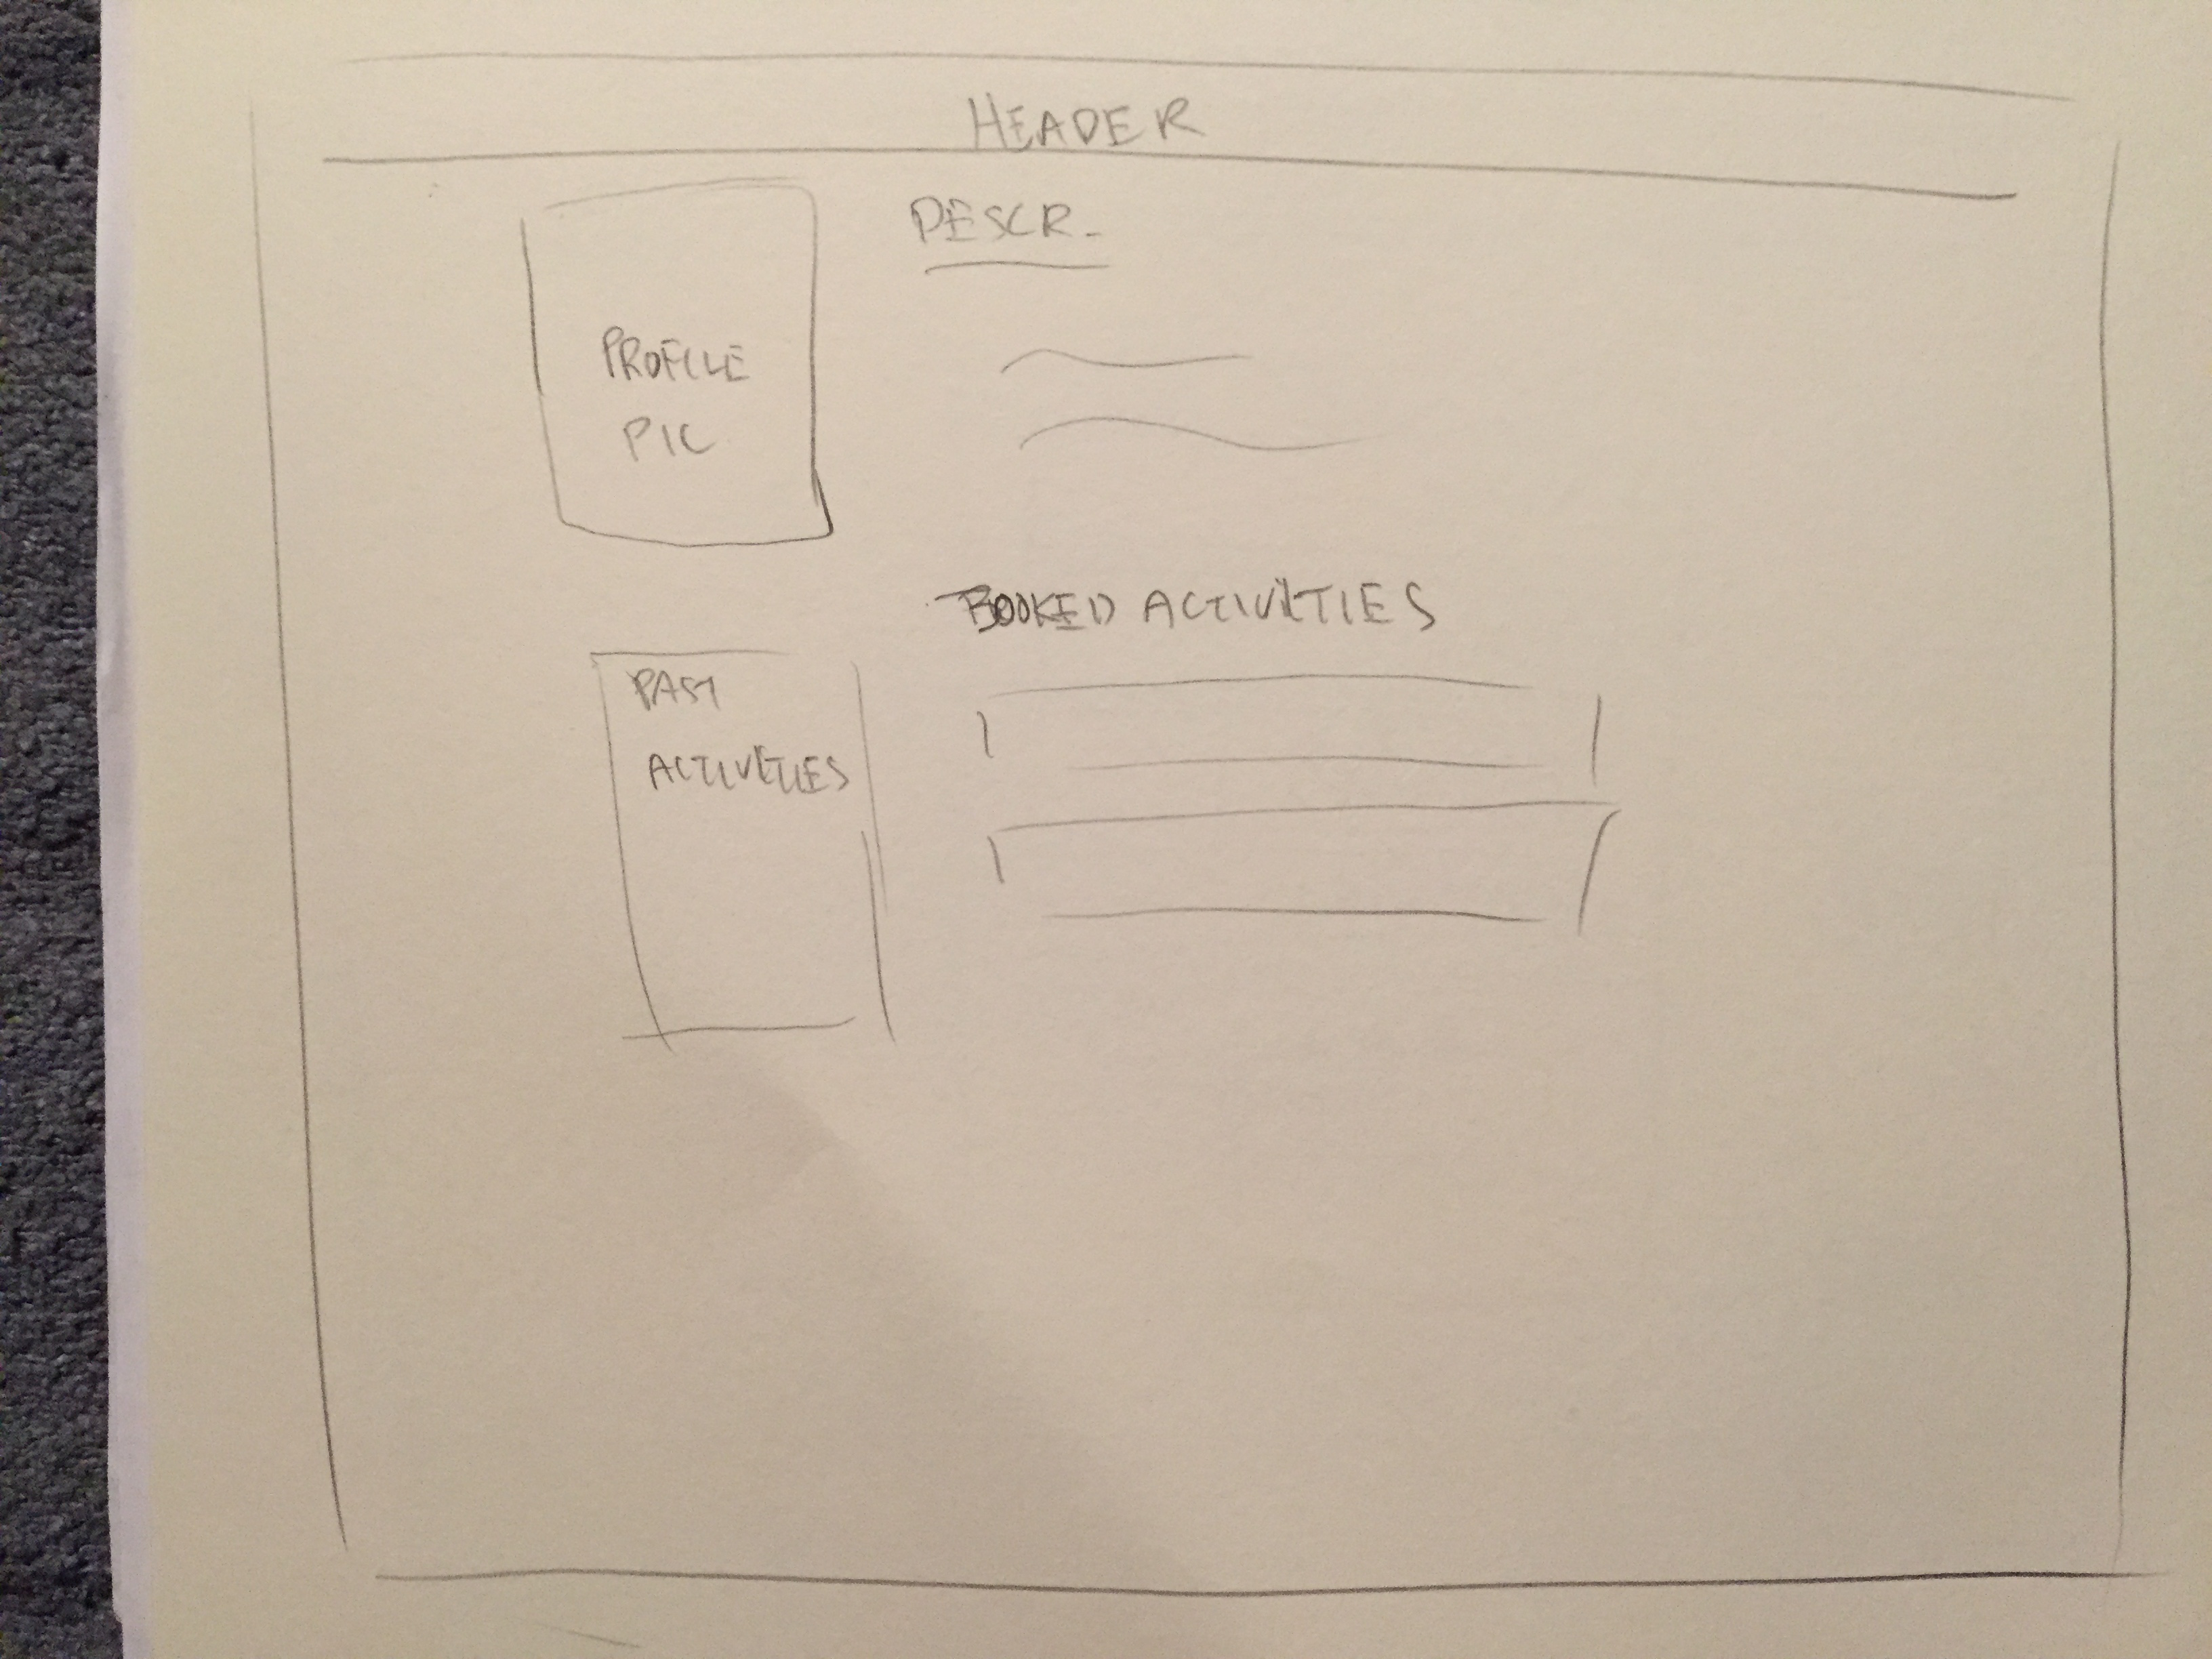 HEADER
DESCR.
PROFILE
PIC
BOOKED ACTIVITIES
PAST
ACTIVITIES